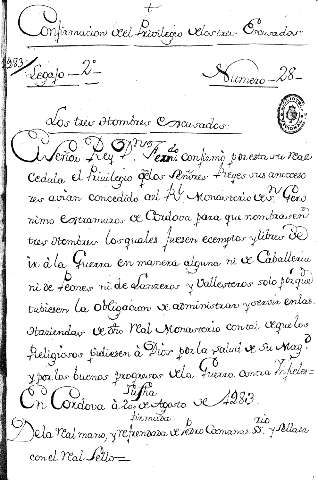 Confirmacion del Privilegio de los tres Escusados
1483
Legajo 2º Numero 28
Los tres Hombres Escusados
El Señor Rey Dn Ferndo confirmó por esta su Real
Cedula el Privilegio q los Señores Reyes sus anteceso
res avian concedido al Rl Monasterio de Sn Gero
nimo extramuros de Cordova para que nombrasen
tres Hombres los quales fuesen ecemptos y libres de
ir à la Guerra en manera alguna ni de Cavalleria
ni de Peones ni de Lanzeros y Vallesteros solo por que
tubiesen la obligacion de administrar y servir en las
Haziendas de dho Real Monasterio con tal de que los
Religiosos pidiesen à Dios por la Salud de Su Magd
y por los buenos progresos de la Guerra contra Infieles
En Cordova à de Agosto de 1483
su fha
De la Real mano, firmada y refrendada de Pedro Camanas Srio y Sellada
con el Real Sello